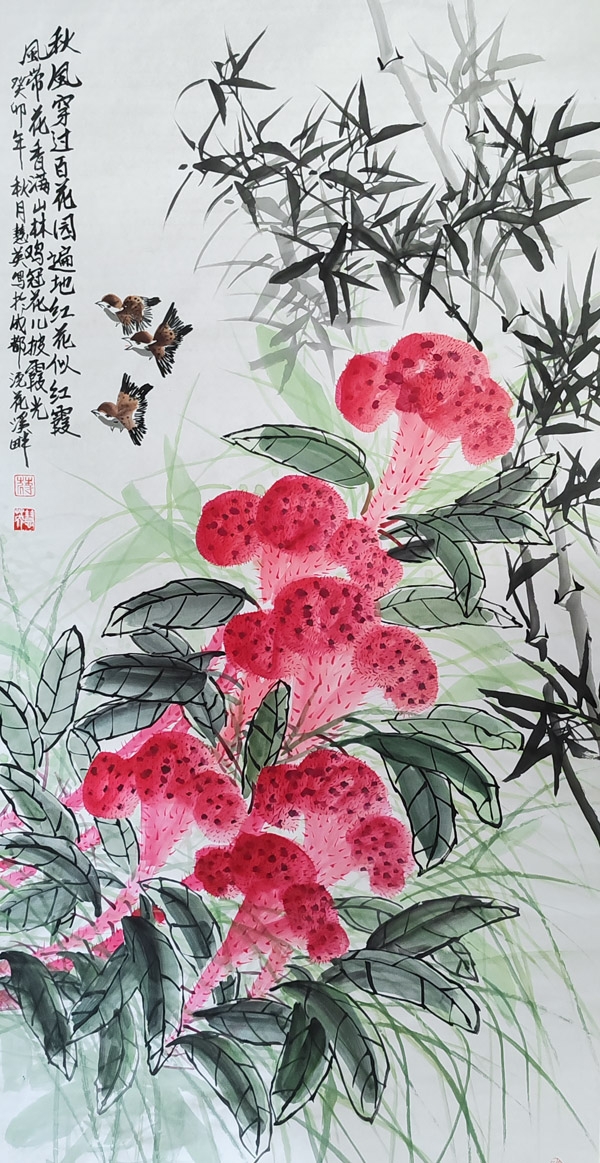 秋風穿过百花园遍地红花似红霞
風常花香满山林鸡冠花儿披霞光
癸卯年秋月慧英写於成都浣花溪畔